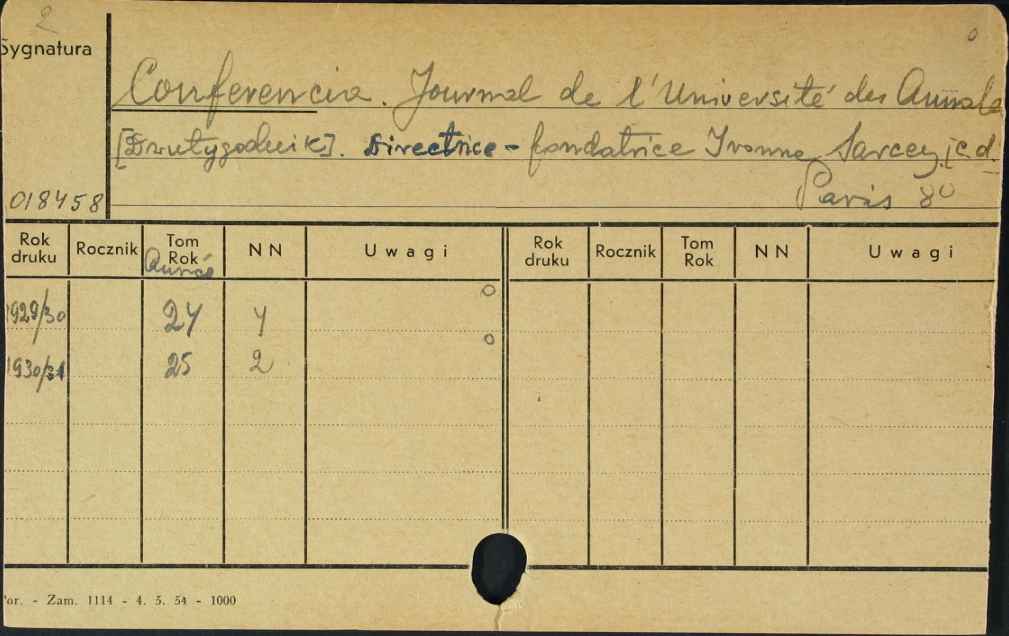 2
Sygnatura
Conferencia. Journal de l'Université des Annales
[Dwutygodnik]. Directrice - fondatrice Yvonne Sarcey. [c.d.
Paris 8º
018458
Rok druku Rocznik Tom Rok NN Uwagi Rok druku Rocznik Tom Rok NN Uwagi
Année
1929/30 24 4
1930/31 25 2
or. - Zam. 1114 - 4. 5. 54 - 1000